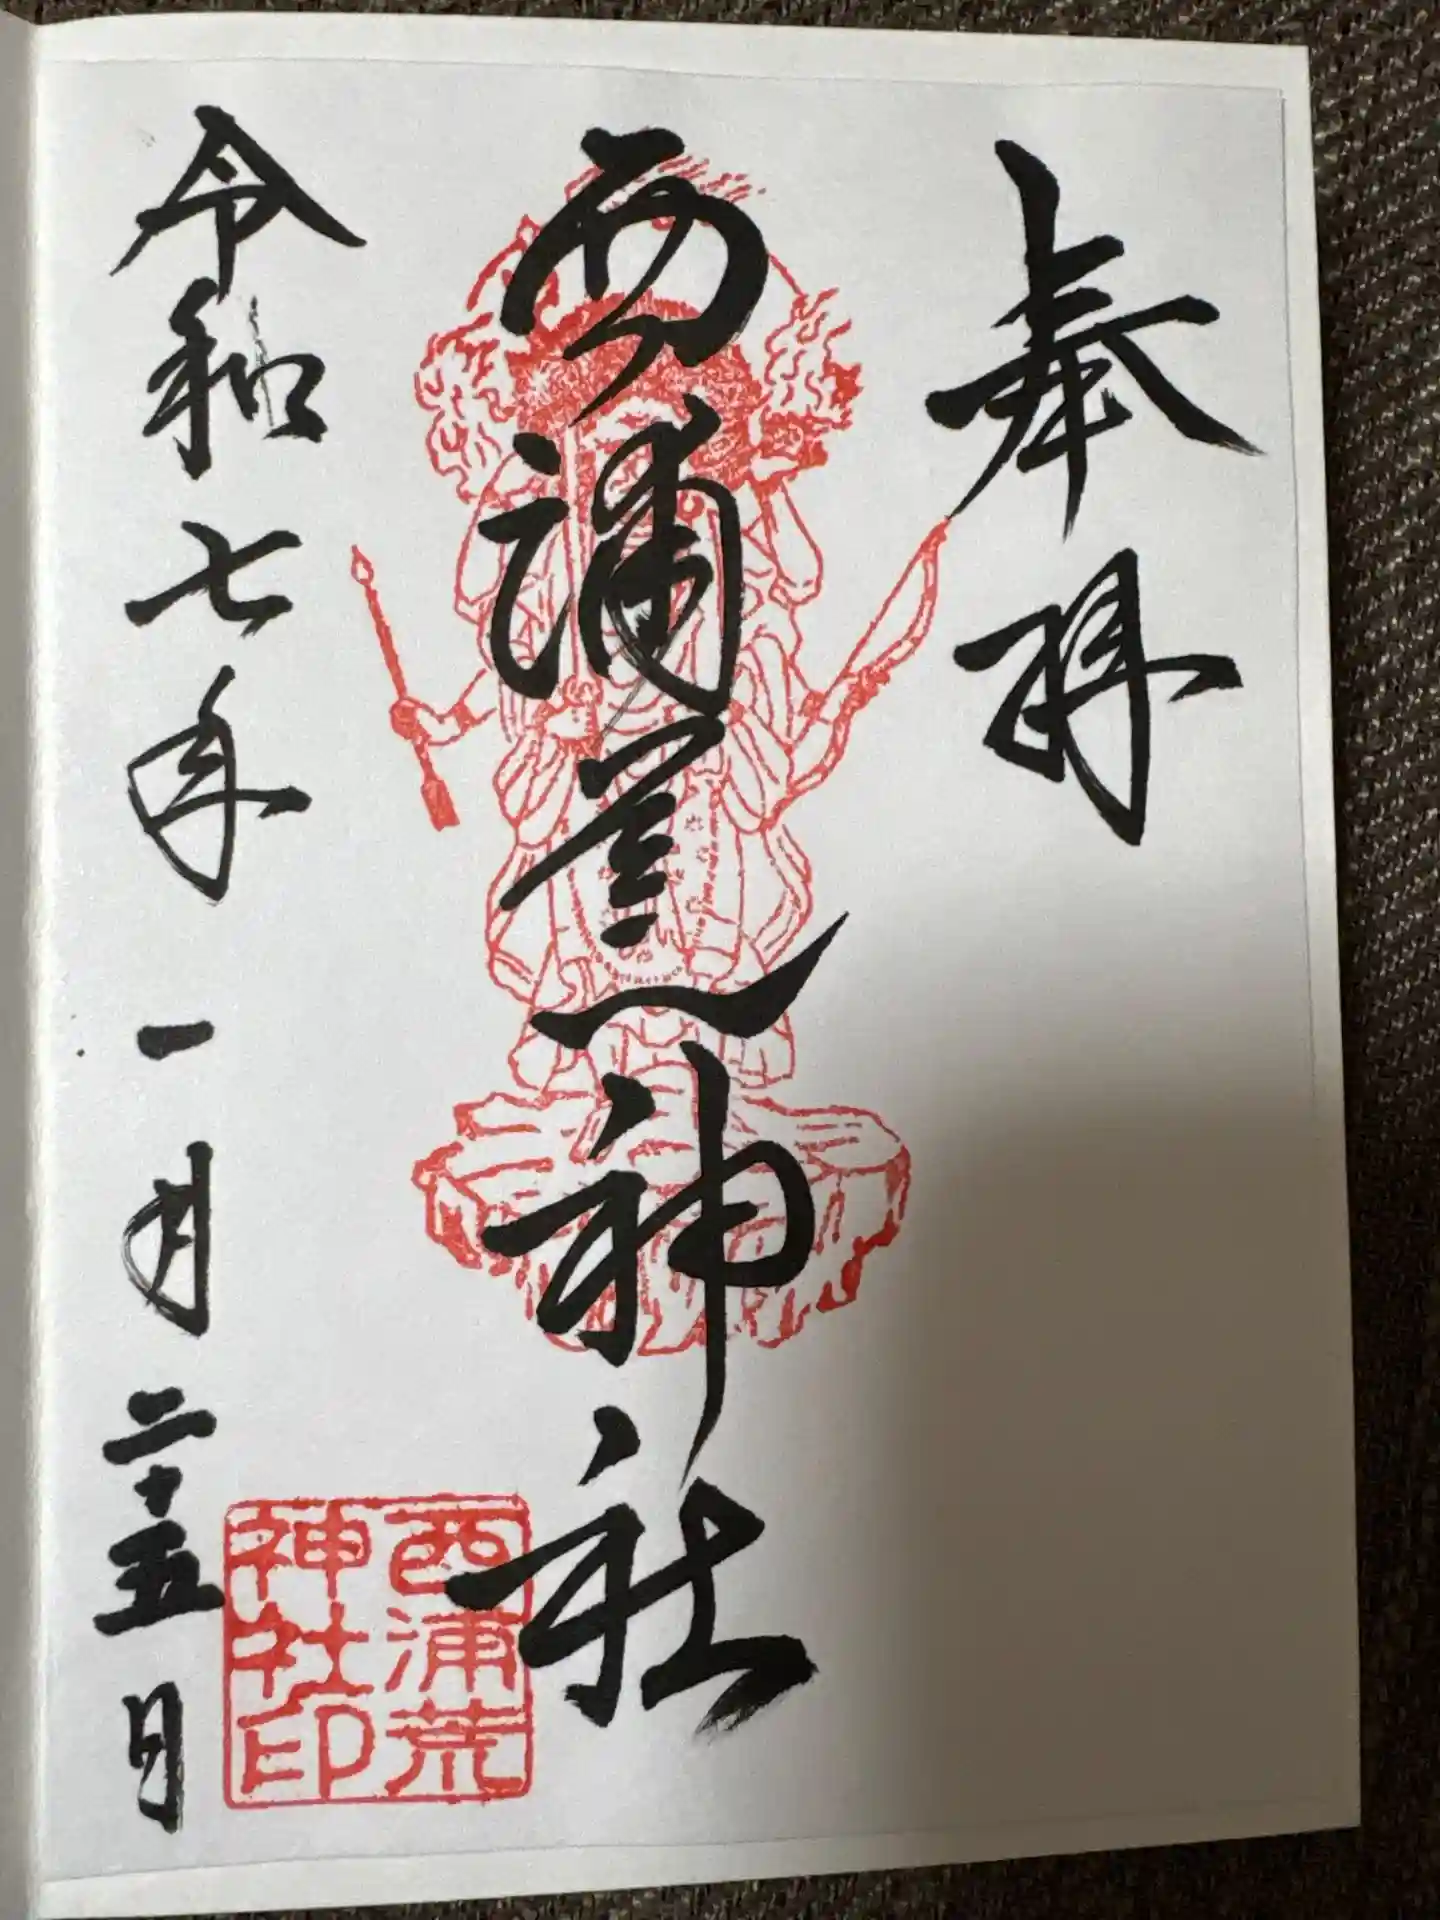 奉拝
西浦荒神社
西浦荒
神社印
令和七年一月二十五日